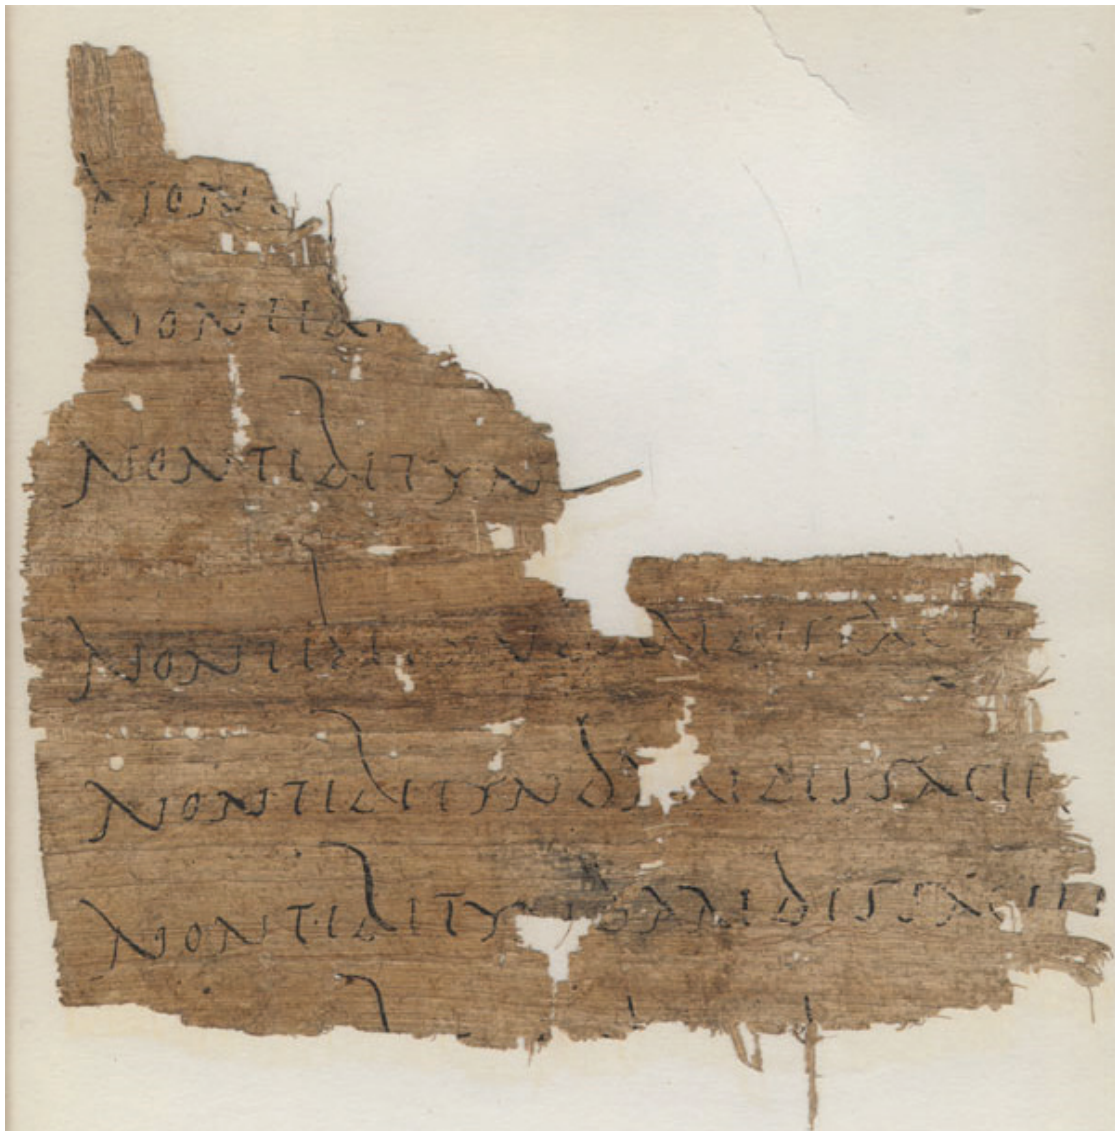 non
non tib
non tibi tyn
non tibi ridis facie
non tibi tyndaridis facie
non tibi tyndaridis facie